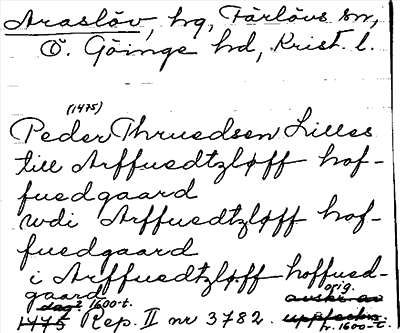 Araslöv, hg, Färlövs sn,
Ö. Göinge hd, Krist. l.
(1475)
Peder Thruedsen Lilles
till Arffuedtzløff hof-
fuedgaard
udi Arffuedtzløff hof-
fuedgaard
i Arffuedtzløff hoffued-
gaard dag? 1600-t. orig. avskr. av
1475 Rep. II nr 3782. uppteckn. h. 1600-t.